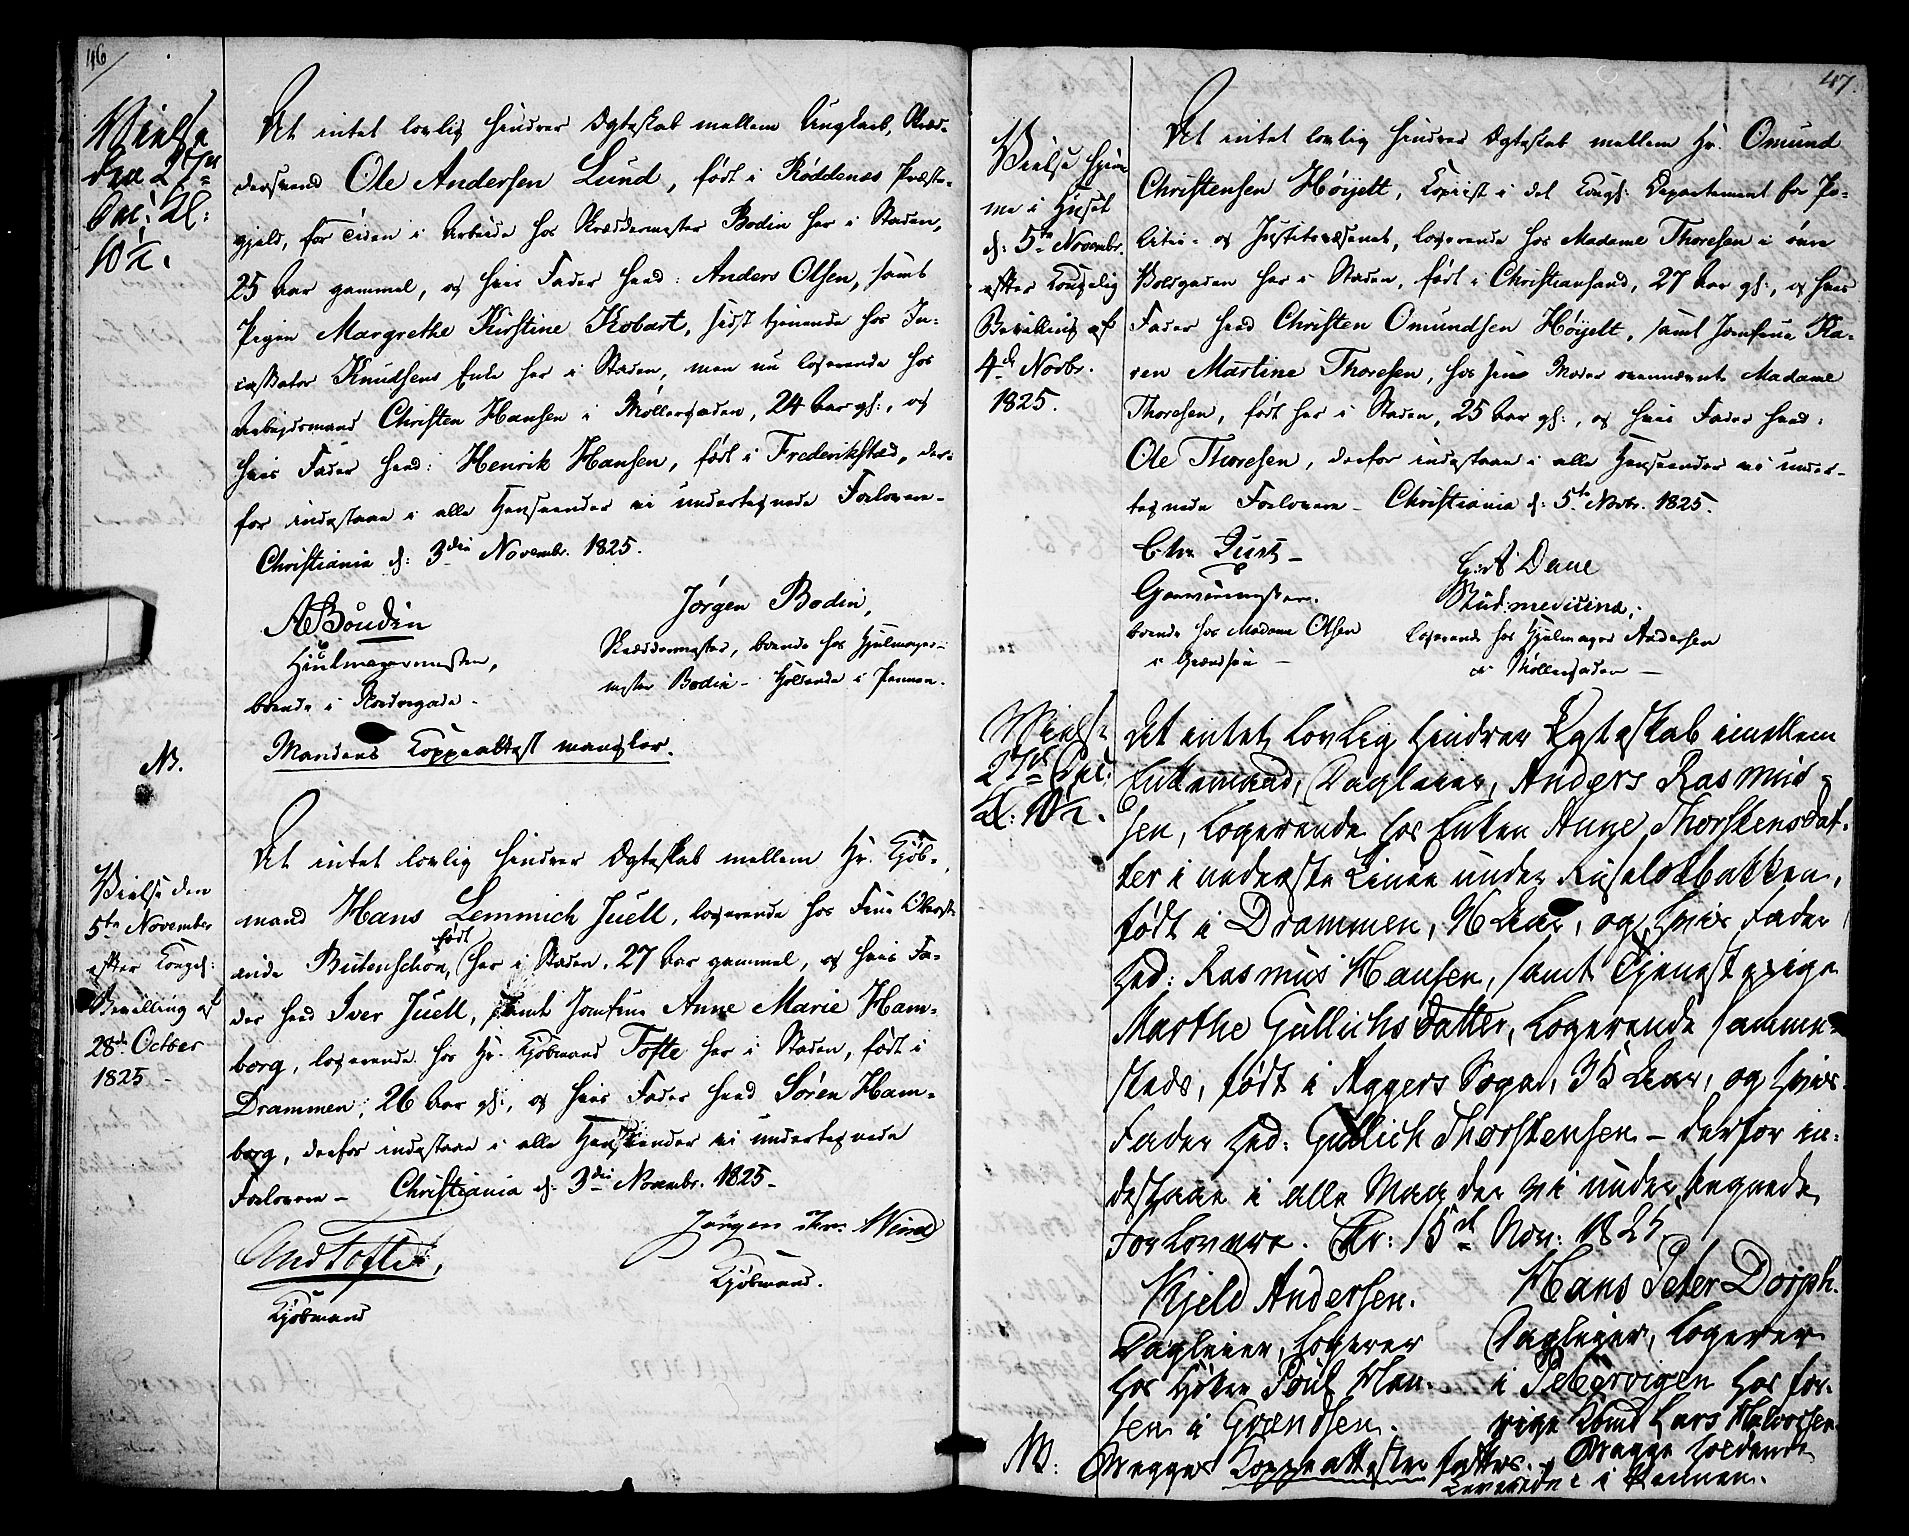 46
Vielse
den 27de
Dec: Kl:
10½.
At intet lovlig hindrer Ægteskab mellem Ungkarl, Skræd-
dersvend Ole Andersen Lund, født i Røddenæs Præste-
gjeld, for Tiden i Arbeide hos Skræddermester Bodin her i Staden,
25 Aar gammel, og hvis Fader heed: Anders Olsen, samt
Pigen Margrethe Kirstine Kobart, sidst tjenende hos
Knudsens Enke her i Staden, men nu logerende hos
Arbejdsmand Christen Hansen i Møllergaden, 24 Aar gl:, og
hvis Fader heed: Henrik Hansen, født i Frederikstad, der-
for indestaae i alle Henseender vi undertegnede Forlovere-
Christiania d: 3die Novembr. 1825.
A Boudin
Hiulmagermester,
boende i
Jørgen Bodin,
Skræddermester, boende hos Hjulmager-
mester Bodin - Holdende i Pennen.
NB.
Mandens Koppeattest mangler.
Vielse den
5te November
efter Kongel:
Bevilling af
28de October
1825 -
At intet lovlig hindrer Ægteskab mellem Hr. Kjøb-
mand Hans Lemmich Juell, logerende hos Frue
Butenschøn, født her i Staden, 27 Aar gammel, og hvis Fa-
der heed Iver Juell, samt Jomfrue Anne Marie Ham-
borg, logerende hos Hr. Kjøbmand Tofte her i Staden, født i
Drammen, 26 Aar gl:, og hvis Fader heed Søren Ham-
borg, derfor indestaae i alle Henseender vi undertegnede
Forlovere - Christiania d: 3die Novembr. 1825 -
And Tofte,
Kjøbmand
Jørgen Wind
Kjøbmand.
47.
Vielse hjem-
me i Huset
d: 5te Novembr.
efter Kongelig
Bevilling af
4de Novbr.
1825.
At intet lovlig hindrer Ægteskab mellem Hr. Omund
Christensen Høijelt, Copiist i det Kongl: Departement for Po-
litie- og Justitsvæsenet, logerende hos Madame Thoresen i øvre
Voldgaden her i Staden, født i Christiansand, 27 Aar gl:, og hvis
Fader heed Christen Omundsen Høijelt, samt Jomfrue Ka-
ren Martine Thoresen, hos sin Moder ovennævnte Madame
Thoresen, født her i Staden, 25 Aar gl:, og hvis Fader heed:
Ole Thoresen, derfor indestaae i alle Henseender vi under-
tegnede Forlovere - Christiania d: 5te Novbr. 1825.
Chr.
boende hos Madame Olsen
i Grændsen -
Daue
Stud: medicinæ,
Logerende hos Hjulmager Andersen
i Møllergaden -
Vielse
27de Dec:
Kl: 10½.
At intet Lovlig hindrer Ægteskab imellem
Enkemand, Dagleier, Anders Rasmus-
sen, Logerende hos Enken Anne Thorstensdat-
ter i nederste Linie under Ruseløkbakken,
født i Drammen, Aar, og hvis Fader
hed: Rasmus Hansen, samt Tjenestepige
Marthe Gullichsdatter, Logerende samme-
steds, født i Aggers Sogn, 35 Aar, og hvis
Fader hed: Gullich Thorstensen - derfor in-
destaae i alle Maader vi undertegnede
Forlovere. Chr: 15d Nov: 1825.
Kjeld Andersen.
Dagleier, Logerer
hos Høker Poul Han-
sen i Grændsen.
Hans Peter Dorph.
Dagleier, Logerer
i Pebervigen hos for-
rige Lars Halvorsen
NB: Begges Koppeattester fattes. Begge holdende
i Pennen.